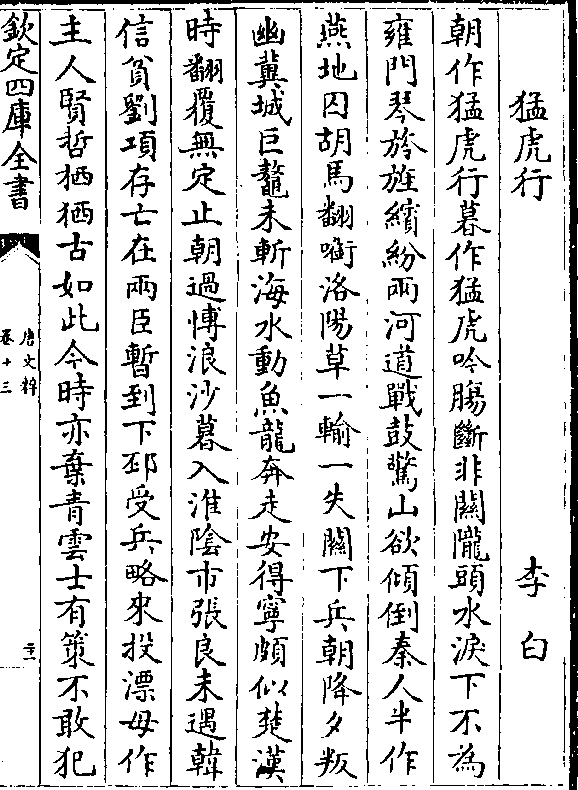 猛虎行　李白
朝作猛虎行暮作猛虎吟腸斷非關隴頭水淚下不為
雍門琴旍旌繽紛兩河道戰鼓驚山欲傾倒秦人半作
燕地囚胡馬翻銜洛陽草一輸一失關下兵朝降夕叛
幽冀城巨鼇未斬海水動魚龍奔走安得寧頗似楚漢
時翻覆無定止朝過愽浪沙暮入淮陰市張良未遇韓
信貧劉項存亡在兩臣暫到下邳受兵略來投漂母作
主人賢哲栖栖古如此今時亦棄青雲士有策不敢犯
欽定四庫全書
唐文粹
卷十三